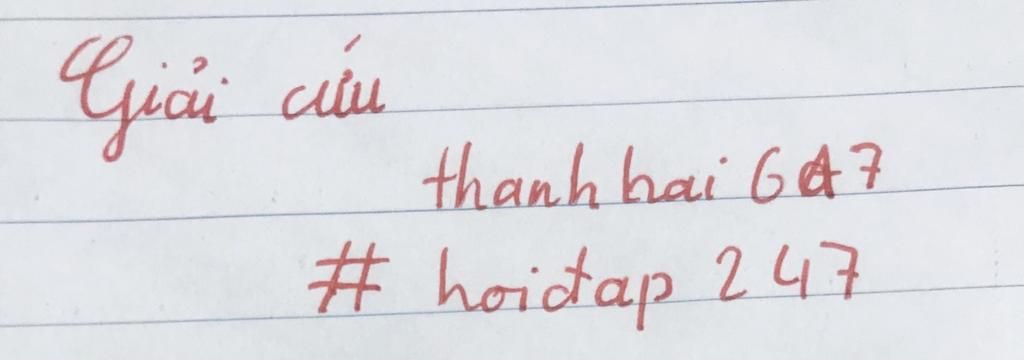 Giải cứu
thanhhai647
# hoidap 247